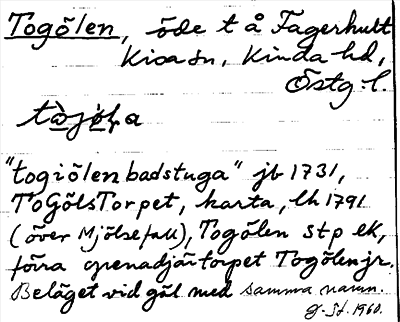 Togölen, öde t å Fagerhult
Kisa sn, Kinda hd,
Östg. l.
"togiölen badstuga" jb 1731,
ToGölsTorpet, karta, lh 1791
(över Mjölsefall), Togölen stp ek,
förra grenadjärtorpet Togölen jr.
Beläget vid göl med samma namn.
1960.